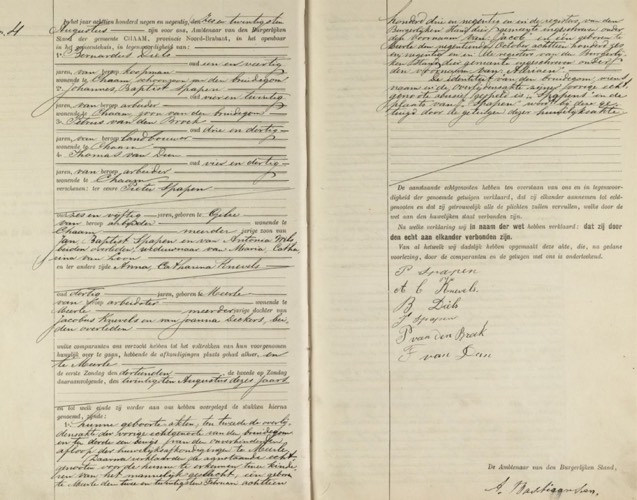 4
In het jaar achttien honderd negen en negentig, den zes en twintigsten
Augustus voor ons, Ambtenaar van den Burgerlijken
Stand der gemeente CHAAM, provincie Noord-Brabant, in het openbaar
in het gemeentehuis, in tegenwoordigheid van:
1e Bernardus Diels
oud een en veertig
jaren, van beroep koopman
wonende te Chaam van den bruidegom
2e Johannes Baptist Spapen
oud vier en twintig
jaren, van beroep arbeider
wonende te Chaam zoon van den bruidegom
3e Petrus van den Broek
oud drie en dertig
jaren, van beroep landbouwer
wonende te Chaam
4e Thomas van Dun
oud vier en dertig
jaren, van beroep arbeider
wonende te Chaam
verschenen: ter eenre Pieter Spapen
oud zes en vijftig jaren, geboren te
van beroep arbeider wonende te
Chaam meerder jarige zoon van
Jan Baptist Spapen en van Antonia
beiden overleden, weduwnaar van Maria Catha
rina van Loon
en ter andere zijde Anna Catharina Knevels
oud dertig jaren, geboren te Meerle
van beroep arbeidster wonende te
Meerle meerderjarige dochter van
Jacobus Knevels en van Joanna Beckers, bei
den overleden
welke comparanten ons verzocht hebben tot het voltrekken van hun voorgenomen
huwelijk over te gaan, hebbende de afkondigingen plaats gehad alhier, en
te Meerle
de eerste Zondag den dertienden de tweede op Zondag
daaraanvolgende, den twintigsten Augustus dezes jaars
en tot welk einde zij verder aan ons hebben overgelegd de stukken hierna
genoemd, zijnde:
1e hunne geboorte akten, ten tweede de overlij
densakte der vorige echtgenoote van den bruidegom
en ten derde een bewijs van den onverhinderden
afloop der huwelijksafkondigingen te Meerle.
Daarna verklaarden de aanstaande echt
genooten voor de hunne te erkennen twee kinde
ren van het mannelijk geslacht, een gebo
te Meerle den twee en twintigsten Februari achttien
honderd drie en negentig en in de registers van den
Burgerlijken Stand dier gemeente ingeschreven onder
den voornaam van Jacob en een geboren te
Meerle den negentienden October achttien honderd zes
en negentig en in de registers van den Burgerlij
ken Stand dier gemeente ingeschreven onder
den voornaam van Adriaan.
De identiteit van den bruidegom, wiens
naam in de overlijdensakte zijner vorige echt
genoote abusief gespeld is „Spaepens” in de
plaats van „Spapen” wordt bij deze ge
tuigd door de getuigen dezer huwelijksakte.
De aanstaande echtgenooten hebben ten overstaan van ons en in tegenwoor-
digheid der genoemde getuigen verklaard, dat zij elkander aannemen tot echt-
genooten en dat zij getrouwelijk alle de plichten zullen vervullen, welke door de
wet aan den huwelijken staat verbonden zijn.
Na welke verklaring wij in naam der wet hebben verklaard: dat zij door
den echt aan elkander verbonden zijn.
Van al hetwelk wij dadelijk hebben opgemaakt deze akte, die, na gedane
voorlezing, door de comparanten en de getuigen met ons is onderteekend.
P Spapen
A C Knevels
B Diels
J Spapen
P van den Broek
T van Dun
De Ambtenaar van den Burgerlijken Stand,